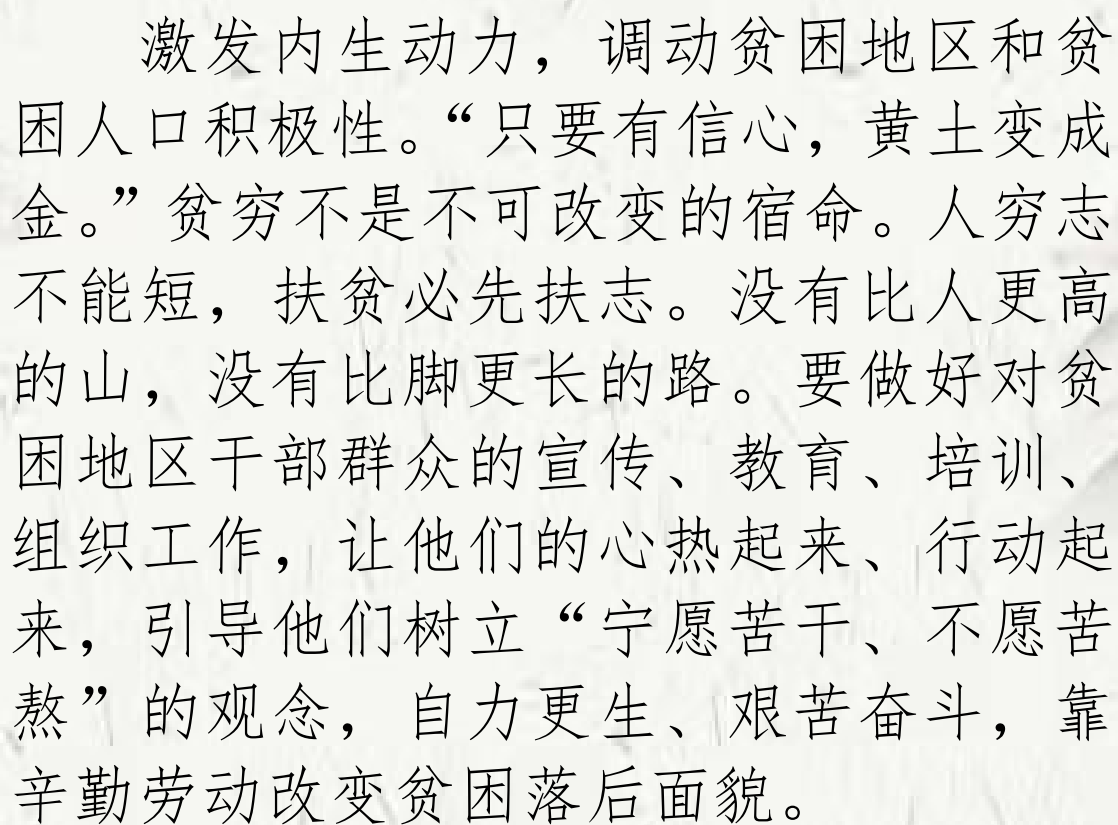 激发内生动力，调动贫困地区和贫
困人口积极性。“只要有信心，黄土变成
金。”贫穷不是不可改变的宿命。人穷志
不能短，扶贫必先扶志。没有比人更高
的山，没有比脚更长的路。要做好对贫
困地区干部群众的宣传、教育、培训、
组织工作，让他们的心热起来、行动起
来，引导他们树立“宁愿苦干、不愿苦
熬”的观念，自力更生、艰苦奋斗，靠
辛勤劳动改变贫困落后面貌。